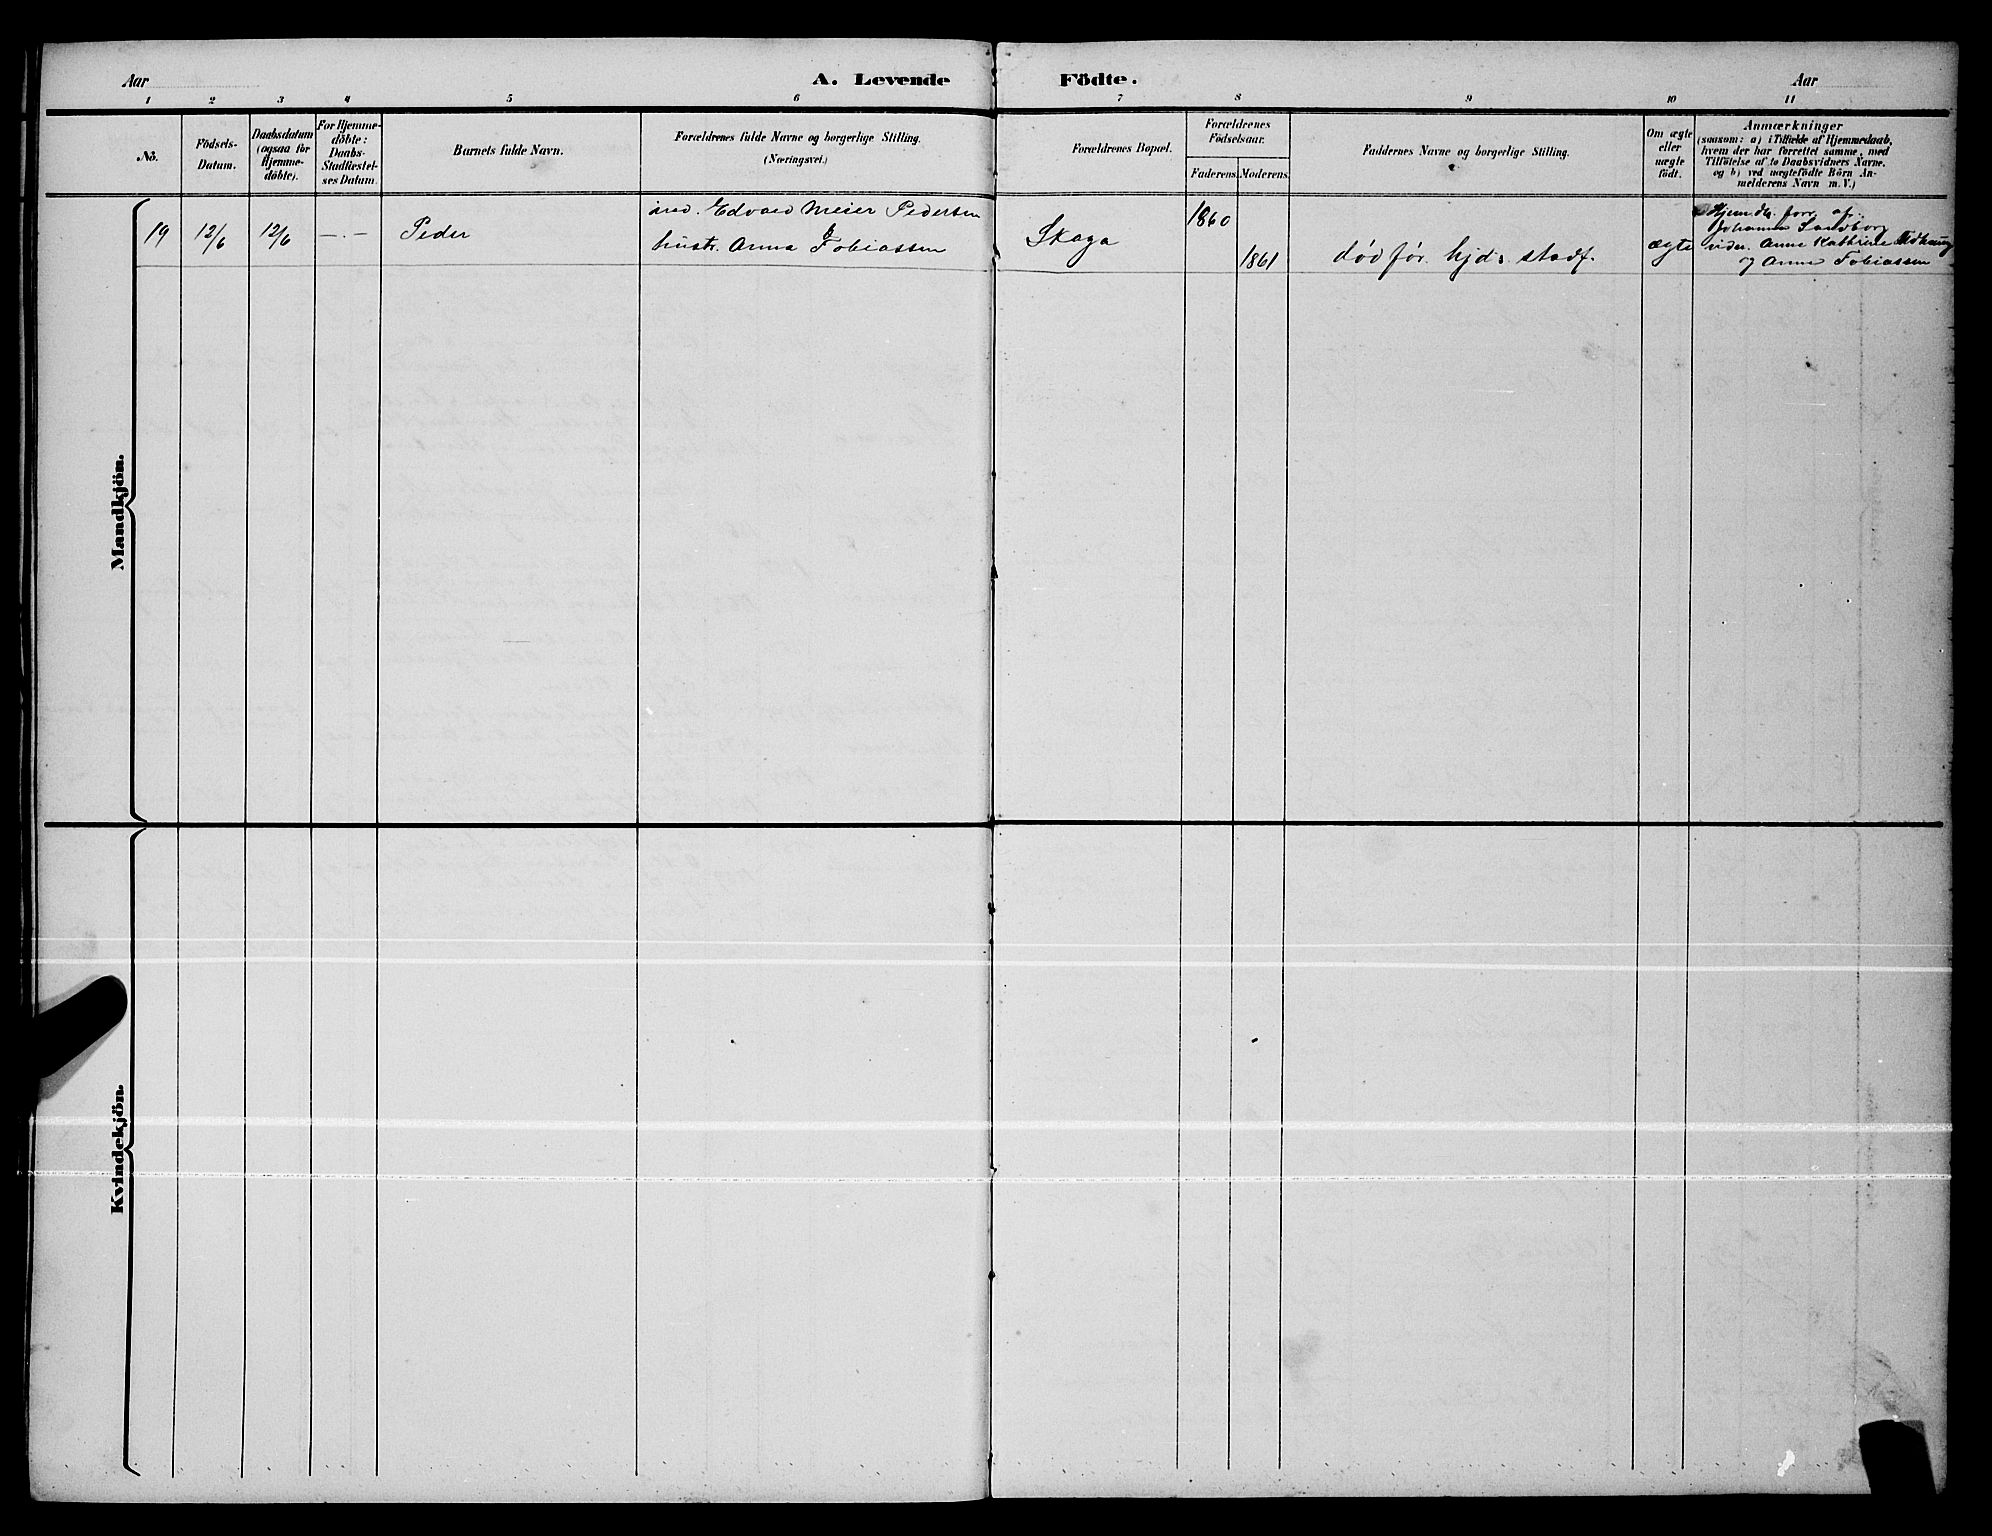 Aar
A. Levende Födte.
Aar
1 2 3 4 5 6 7 8 9 10 11
No.
Födsels-
Datum.
Daabsdatum
(ogsaa for
Hjemme-
döbte).
For Hjemme-
döbte:
Daabs-
Stadfæstel-
ses Datum.
Barnets fulde Navn.
Forældrenes fulde Navne og borgerlige Stilling.
(Næringsvei.)
Forældrenes Bopæl.
Forældrenes
Födselsaar.
Faderens.
Moderens.
Faddernes Navne og borgerlige Stilling.
Om ægte
eller
uægte
født.
Anmærkninger
(saasom: a) i Tilfælde af Hjemmedaab,
hvem der har forrettet samme, med
Tilföielse af to Daabsvidners Navne,
og b) ved uægtefödte Börn An-
melderens Navn m. V.)
Mandkjön.
19
12/6
12/6
-.-
Peder
ind. Edvard Meier Pedersen
hustr. Anna Tobiassen
Skaga
1860
1861
død før hjd: stadf.
ægte
Hjem db. forr. af
Johanna Sandborg
vidn. Anne Kathrine
og Anne Tobiassen
Kvindekjön.